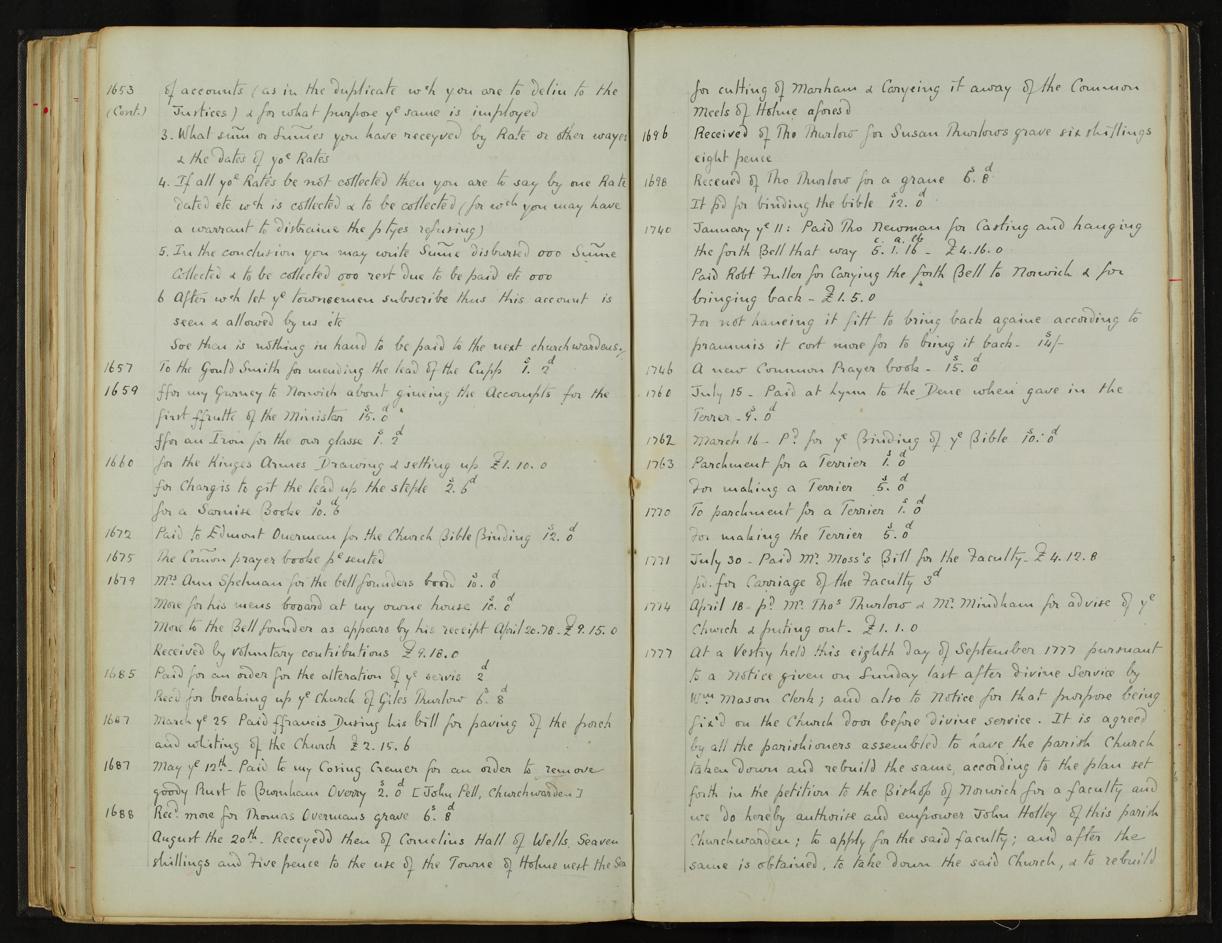 1653 of accounts (as in the duplicate wch you are to deliu to the
(Cont.) Justices) & for what purpose ye same is imployed
3. What sum̃ or sum̃es you have receyved by Rate or other wayes
& the dates of yoe Rates
4. If all yoe Rates be not collected then you are to say by one Rate
dated etc. wch is collected & to be collected (for wch you may have
a warrant to distraine the ptyes refusing)
5. In the conclusion you may write Sum̃e disbursed 000 Sum̃e
Collected & to be collected 000 rest due to be paid etc 000
6 After wch let ye townsemen subscribe thus this account is
seen & allowed by us etc
Soe then is nothing in hand to be paid to the next churchwardens.
1657 To the Gould Smith for mending the lead of the Cupp 1s. 2d
1659 ffor my Gurney to Norwich about giueing the Accompts for the
first ffrutte of the Minister 15s. 0d
ffor an Iron for the our glasse 1s. 2d
1660 for the Kinges Armes Drawing & setting up £1. 10. 0
for Chargis to git the lead up the steple 2s. 6d
for a Sarvise Booke 10s. 6d
1672 Paid to Edmont Ouerman for the Church Bible Binding 12s. 0d
1675 The Com̃on prayer booke pesented
1679 Mrs Ann Spelman for the bell founders boord 10s. 0d
More for his mens booard at my owne house 10s. 0d
More to the Bell founder as appears by his receipt April 20. 78 - £9. 15. 0
Received by voluntary contributions £9. 18. 0
1685 Paid for an order for the alteration of ye servis 2d
Recd for breaking up ye Church of Giles Thurlow 6s. 8d
1687 March ye 25 Paid ffrancis Dusing his bill for paving of the porch
and whiting of the Church £2. 15. 6
1687 May ye 12th - Paid to my Cosing Cremer for an order to remove
goody Pust to Burnham Overry 2s. 0d [John Pell, Churchwarden]
1688 Recd. more for Thomas Overmans grave 6s. 8d
August the 20th. Receyedd then of Cornelius Hall of Wells, Seaven
shillings and Five pence to the use of the Towne of Holme next the Sea
for cutting of Marham & Caryeing it away of the Common
Meels of Holme aforesd
1696 Received of Tho Thurlow for Susan Thurlows grave six shillings
eight pence
1698 Receued of Tho Thurlow for a graue 6s. 8d
It pd for binding the bible 12s. 0d
1740 January ye 11: Paid Tho Newman for Casting and hanging
the forth Bell that way 5c. 1q. 16lb - £4. 16. 0
Paid Robt Fuller for Carying the forth Bell to Norwich & for
bringing back - £1. 5. 0
For not haueing it fitt to bring back againe according to
prammis it cort more for to bring it back - 14s/-
1746 A new Common Prayer book - 15s. 0d
1760 July 15 - Paid at Lynn to the Dene when gave in the
Terrer - 4s. 0d
1762 March 16 - Pd. for ye Binding of ye Bible 10s. 0d
1763 Parchment for a Terrier 1s. 0d
For making a Terrier 5s. 0d
1770 To parchment for a Terrier 1s. 0d
For making the Terrier 5s. 0d
1771 July 30 - Paid Mr. Moss's Bill for the Faculty - £4. 12. 8
pd. for Carriage of the Faculty 3d
1774 April 18 - pd. Mr. Thos Thurlow & Mr. Mindham for advise of ye
Church & puting out - £1. 1. 0
1777 At a Vestry held this eighth day of September 1777 pursuant
to a Notice given on Sunday last after divine Service by
Wm Mason Clerk; and also to Notice for that purpose being
fix'd on the Church door before divine service. It is agreed
by all the parishioners assembled to have the parish Church
taken down and rebuild the same, according to the plan set
forth in the petition to the Bishop of Norwich for a faculty and
we do hereby authorise and empower John Holley of this parish
Churchwarden; to apply for the said faculty; and after the
same is obtained, to take down the said Church, & to rebuild